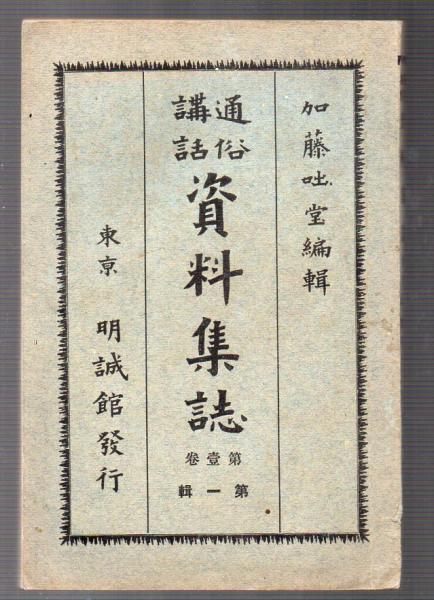 加藤咄堂編輯
通俗
講話
資料集誌
第壹卷
第一輯
東京
明誠館發行